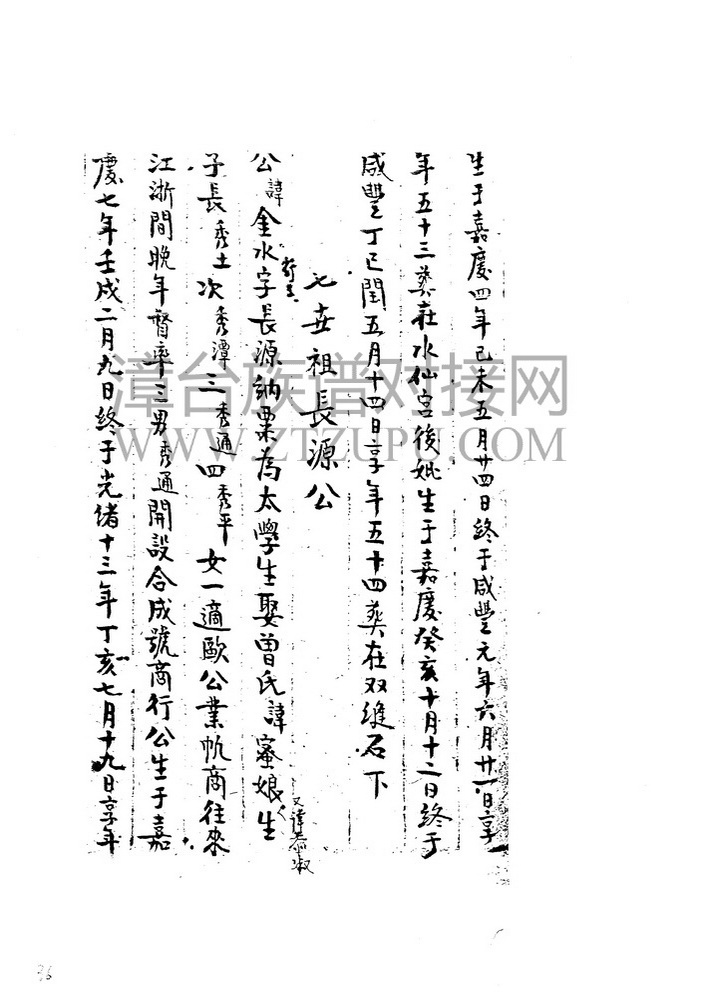 生于嘉慶四年己未五月廿四日終于咸豐元年六月廿一日享
年五十三葬在水仙宮後妣生于嘉慶癸亥十月十二日終于
咸豐丁巳閏五月十四日享年五十四葬在双縫石下
七世祖長源公
公諱金水字長源納粟為太學生娶曾氏諱蜜娘生
又諱恭淑
子長秀土次秀潭三秀通四秀平女一適歐公業帆商往來
江浙間晚年督率三男秀通開設合成號商行公生于嘉
慶七年壬戌二月九日終于光緒十三年丁亥七月十九日享年
漳台族谱对接网
WWW.ZTZUPU.COM
36